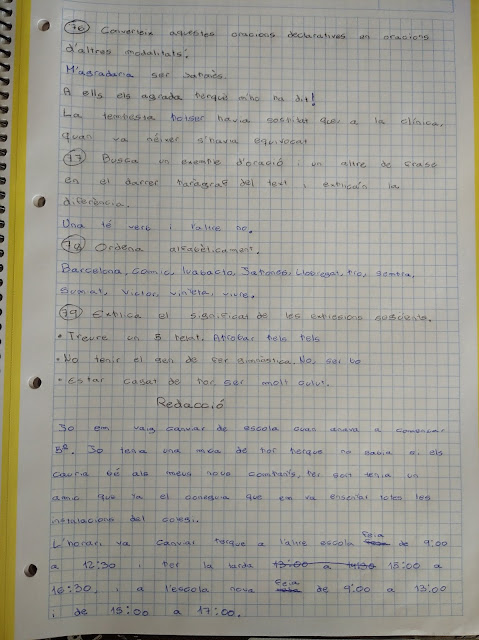 76 Converteix aquestes oracions declaratives en oracions
d'altres modalitats.
M'agradaria ser Japonès.
A ells els agrada perquè m'ho ha dit!
La temptesta potser havia sospitat que, a la clínica,
quan va néixer s'havia equivocat
77 Busca un exemple d'oració i un altre de frase
en el darrer paràgraf del text i explica'n la
diferència.
Una té verb i l'altre no.
78 Ordena alfabèticament.
Barcelona, Còmic, Japonès, Llobregat, sembla,
sumat, Victor, vinyeta, viure.
79 Explica el significat de les expressions següents.
• Treure un 5 pelat. Aprobar pels pèls
• No tenir el gen de ser gimnàstica. No, ser bo
• Estar cagat de por. ser molt
Redacció
Jo em vaig canviar de escola quan anava a començar
5º. Jo tenia una mica de por perque no sabia si els
cauria bé als meus nous companys, per sort tenia un
amic que ja el coneguia que em va enseñar totes les
instalacions del colegi.
L'horari va canviar perque a l'altre escola feia de 9:00
a 12:30 i per la tarda 13:00 a 14:30 15:00 a
16:30, i a l'escola nova feia de 9:00 a 13:00
i de 15:00 a 17:00.